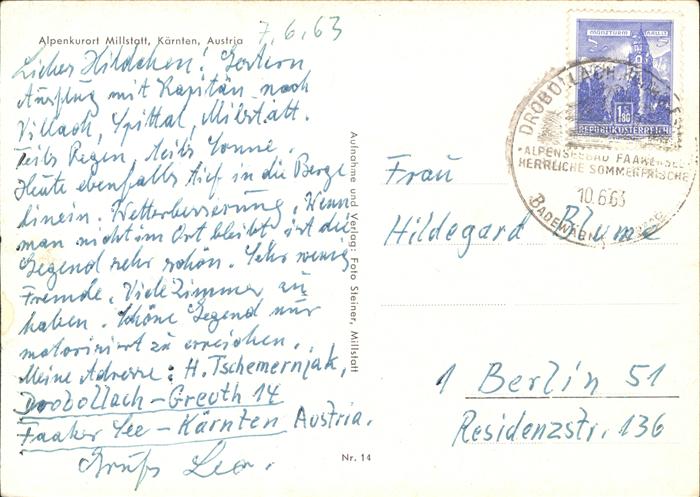 7.6.63
Alpenkurort Millstatt, Kärnten, Austria
Liebes Hildchen! Gestern
Ausflug mit Kapitän nach
Villach, Spittal, Milstatt.
Teils Regen, teils Sonne.
Heute ebenfalls tief in die Berge
hinein. Wetterbesserung. Wenn
man nicht im Ort bleibt ist die
Gegend sehr schön. Sehr wenig
Fremde. Viele Zimmer zu
haben. Schöne Gegend nur
motorisiert zu erreichen.
Meine Adresse: H. Tschemernjak,
Drobollach-Greuth 14
Faaker See-Kärnten Austria.
Gruß Leo.
Aufnahme und Verlag: Foto Steiner, Millstatt
Nr. 14
MÜNZTURM HALL I. T.
1.80
REPUBLIK ÖSTERREICH
DROBOLLACH
ALPENSEEBAD FAAKERSEE
HERRLICHE SOMMERFRISCHE
10.6.63
Frau
Hildegard Blume
1 Berlin 51
Residenzstr. 136